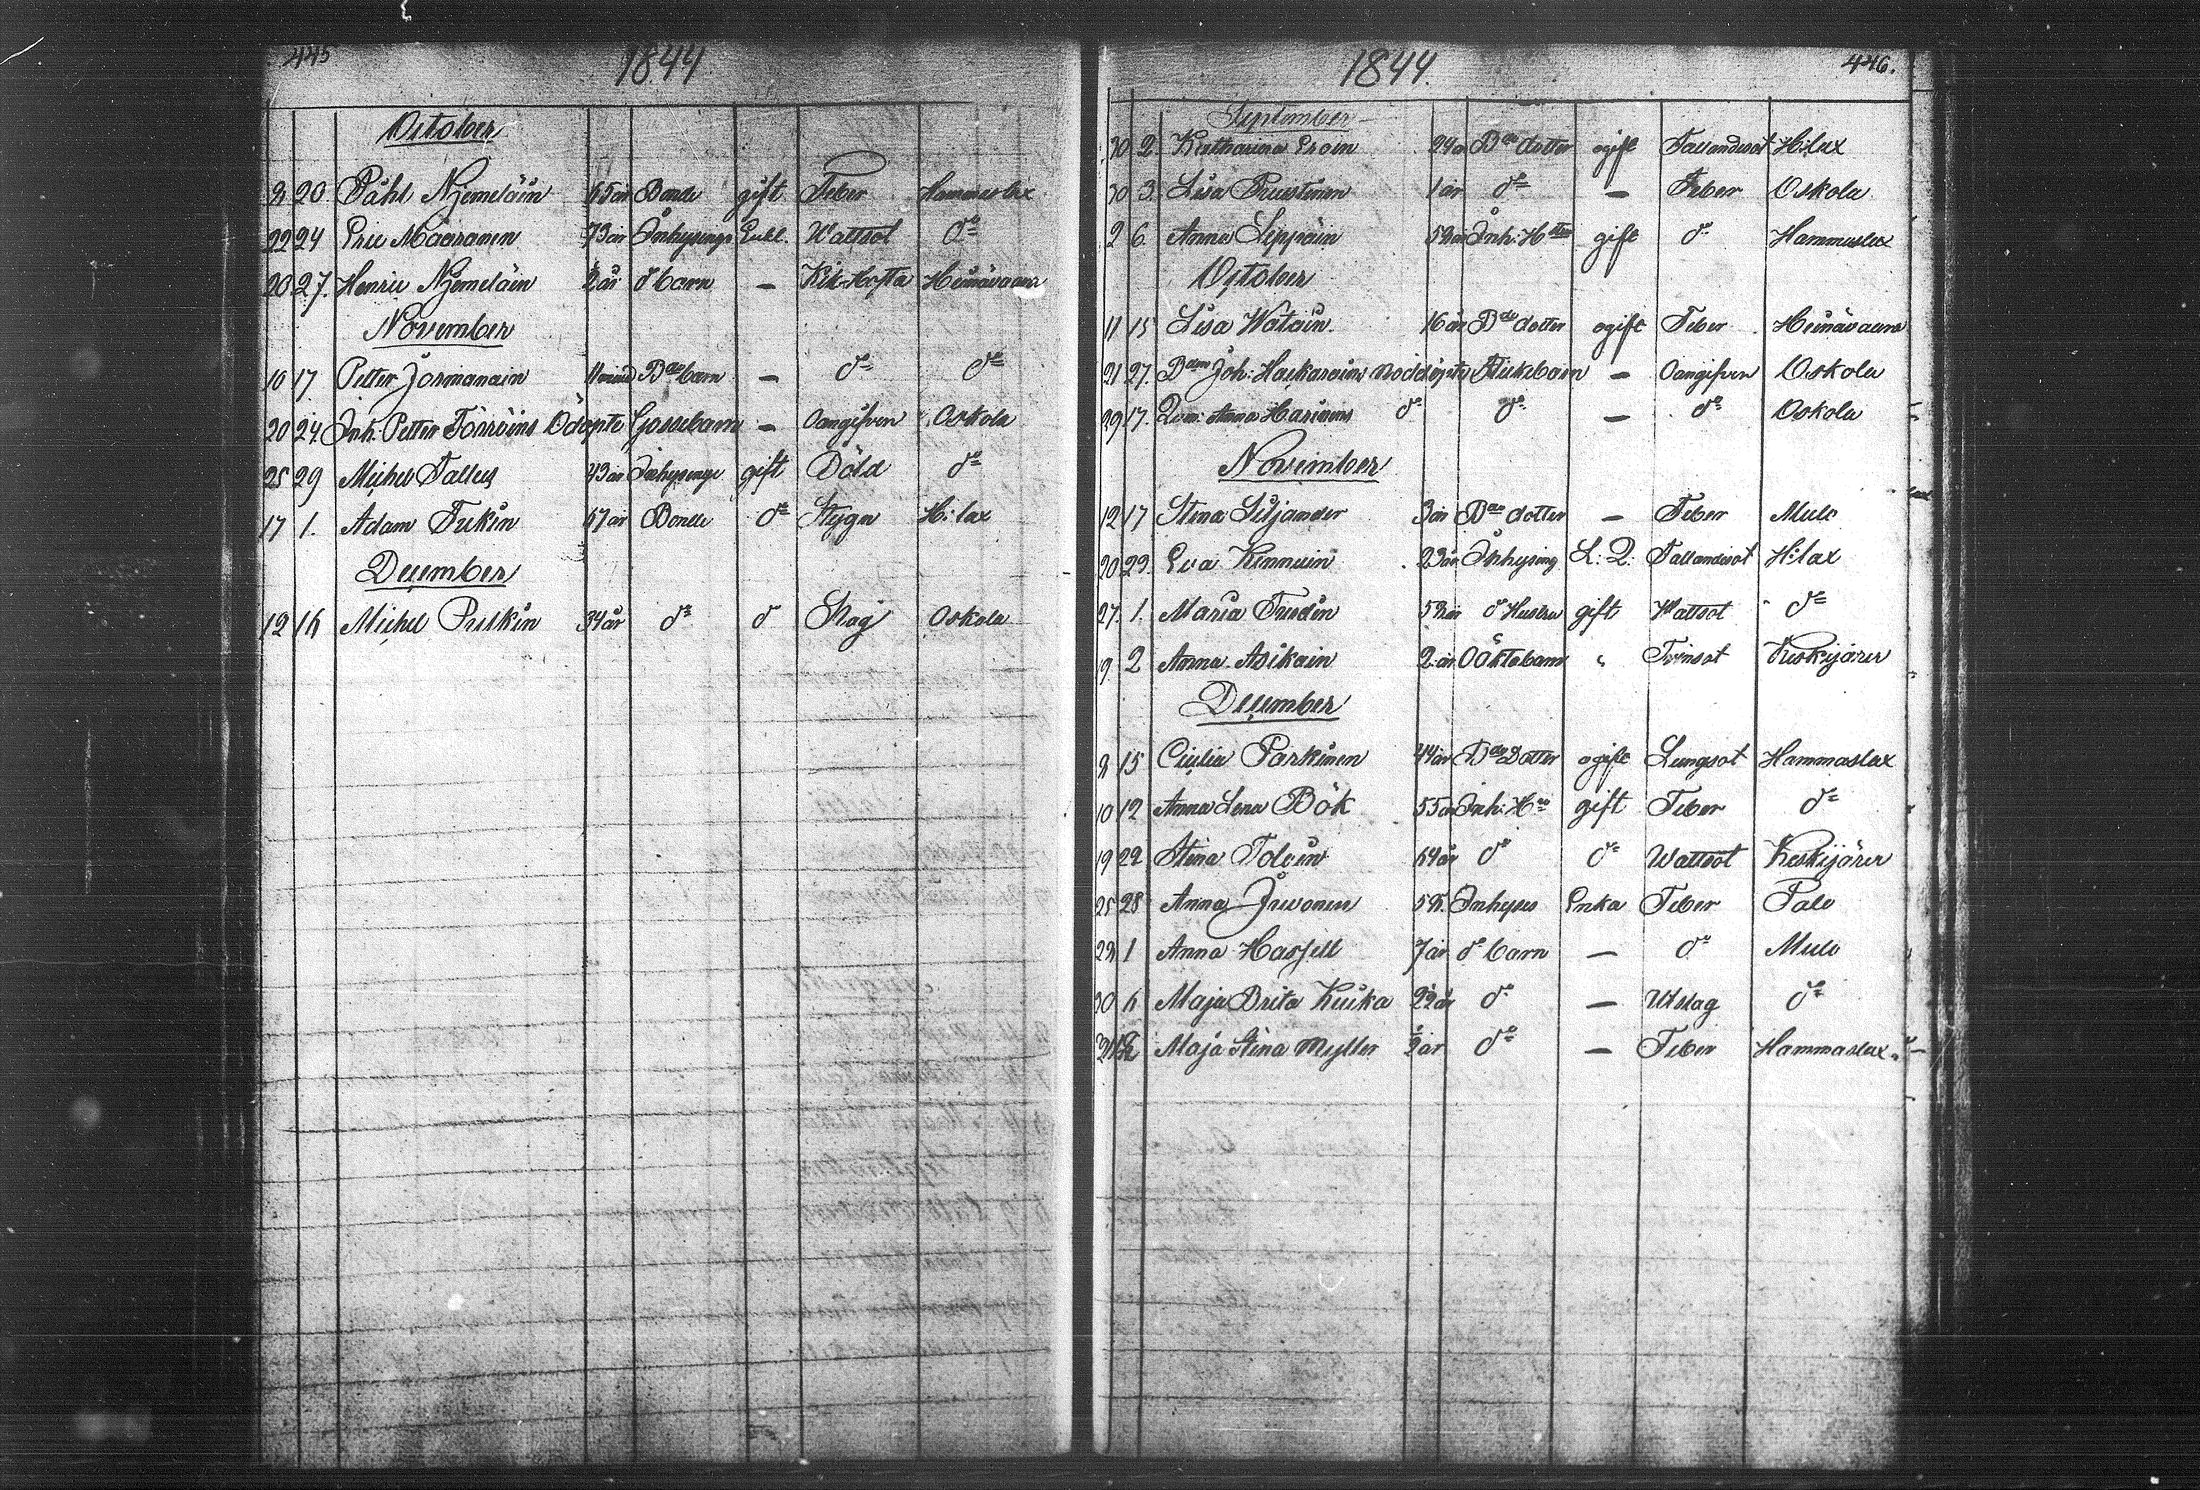 445
1844
October
20. Påhl Njemeläin 65 år Bonde gift Feber Hammaslax
22 24 Eric Määränen 73 år Inhysings Enkl. Wattsot dº
20 27. Henric Njemeläin 2 år dº barn — Kik-Hosta Heinävaara
November
10 17 Petter Jormanain 11 Bde barn — dº dº
20 24. Inh. Petter Törröins Odöpte Gossebarn — Oangifven Oskola
25 29 Michel Tallus 43 år Inhysinge gift Död dº
17 1. Adam Turkin 67 år Bonde dº Stygn H:lax
December
12 16 Michel Puikin 34 år dº dº Slag Oskola
1844.
446.
September
30 2. Katharina Eroin 24 år Bde dotter ogift Hlax
30 3. Lisa Puustinen 1 år dº — Feber Oskola
2 6. Anna Seppäin 52 år Inh. gift dº Hammaslax
October
11 15 Lisa Wätäin 16 år Bde dotter ogift Feber Heinävaara
21 27. Joh: Haskarains Flickebarn — Oangifven Oskola
29 17. Anna dº dº — dº Oskola
November
12 17 Stina Siljander 3 år Bde dotter — Feber Mulo
20 29. Eva Kinnuin 23 år Inhysing L: Q. H:lax
27. 1. Maria Turuin 52 år dº Hustru gift Wattsot dº
9. 2 Anna Asikain 2 år Oäktabarn " Tvinsot Keskijärvi
December
15 Cicilia Parkinen 44 år Bde Dotter ogift Lungsot Hammaslax
10 12 Anna Lena Bök 55 år Inh: Hu gift Feber dº
19 22 Stina Tolvin 64 år dº dº Wattsot Keskijärvi
25 28 Anna Juvonen Inhyses Enka Feber Palo
1 Anna Hasjell 7 år dº barn — dº Mulo
30 6 Maja Brita Kuika 2½ år dº — Utslag dº
Maja Stina Myller ½ år dº — Feber Hammaslax